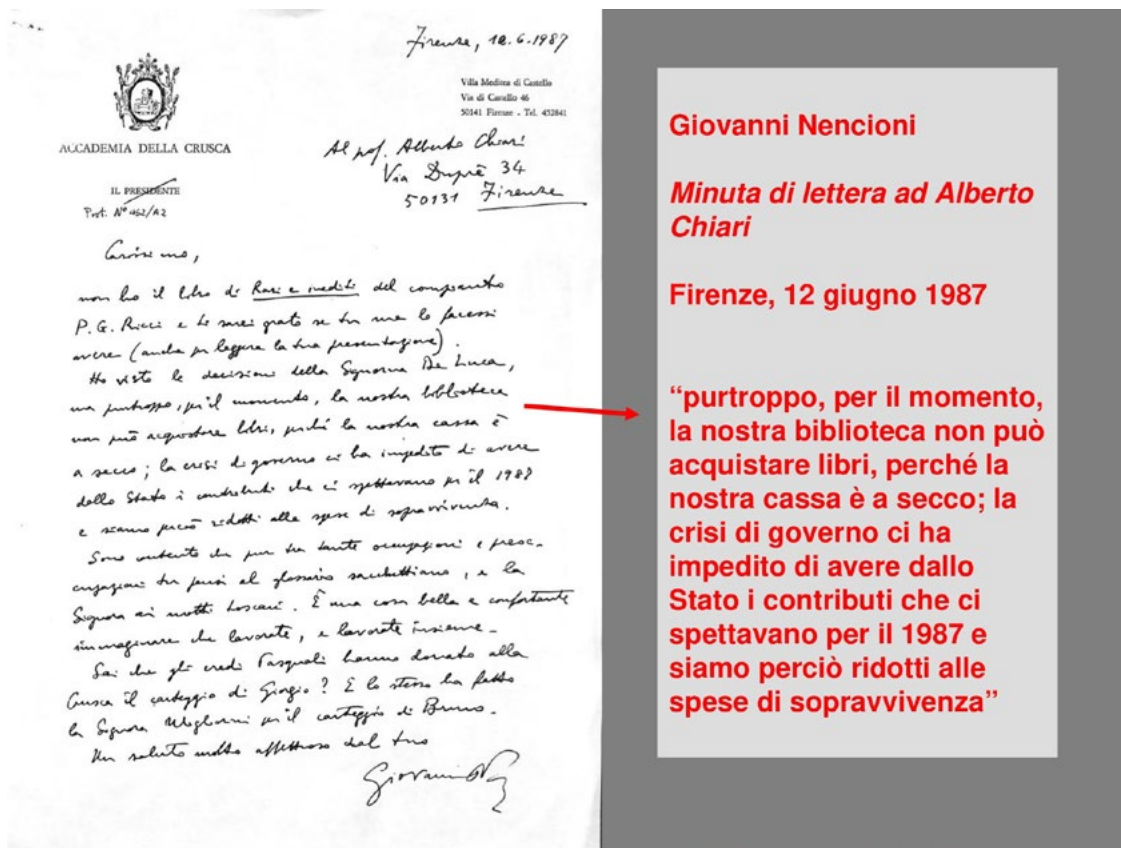 Firenze, 12.6.1987
Villa Medicea di Castello
Via di Castello 46
50141 Firenze - Tel. 452841
ACCADEMIA DELLA CRUSCA
IL PRESIDENTE
Prot. N° 1452/A2
Al prof. Alberto Chiari
Via Dupré 34
50131 Firenze
Carissimo,
non ho il libro di Rari e inediti del compianto
P. G. Ricci e ti sarei grato se tu me lo facessi
avere (anche per leggere la tua presentazione).
Ho visto le decisioni della Signorina De Luca,
ma purtroppo, per il momento, la nostra biblioteca
non può acquistare libri, perché la nostra cassa è
a secco; la crisi di governo ci ha impedito di avere
dallo Stato i contributi che ci spettavano per il 1987
e siamo perciò ridotti alle spese di sopravvivenza.
Sono contento che pur tra tante occupazioni e preoc-
cupazioni tu pensi al glossario sacchettiano, e la
Signora ai motti toscani. È una cosa bella e confortante
immaginare che lavorate, e lavorate insieme.
Sai che gli eredi Pasquali hanno donato alla
Crusca il carteggio di Giorgio? E lo stesso ha fatto
la Signora Migliorini per il carteggio di Bruno.
Un saluto molto affettuoso dal tuo
Giovanni
Giovanni Nencioni
Minuta di lettera ad Alberto
Chiari
Firenze, 12 giugno 1987
“purtroppo, per il momento,
la nostra biblioteca non può
acquistare libri, perché la
nostra cassa è a secco; la
crisi di governo ci ha
impedito di avere dallo
Stato i contributi che ci
spettavano per il 1987 e
siamo perciò ridotti alle
spese di sopravvivenza”